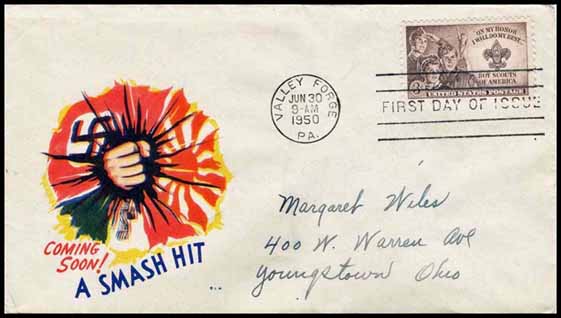 ON MY HONOR
I WILL DO MY BEST...
BOY SCOUTS
OF AMERICA
3¢
UNITED STATES POSTAGE
VALLEY FORGE
JUN 30
9-AM
1950
PA.
FIRST DAY OF ISSUE
COMING
SOON!
A SMASH HIT
Margaret Wiles
400 W. Warren Ave
Youngstown Ohio